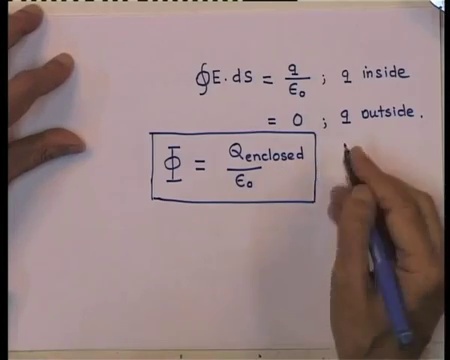 ∮E.ds = q/ε₀ ; q inside
= 0 ; q outside.
Φ = Qenclosed/ε₀